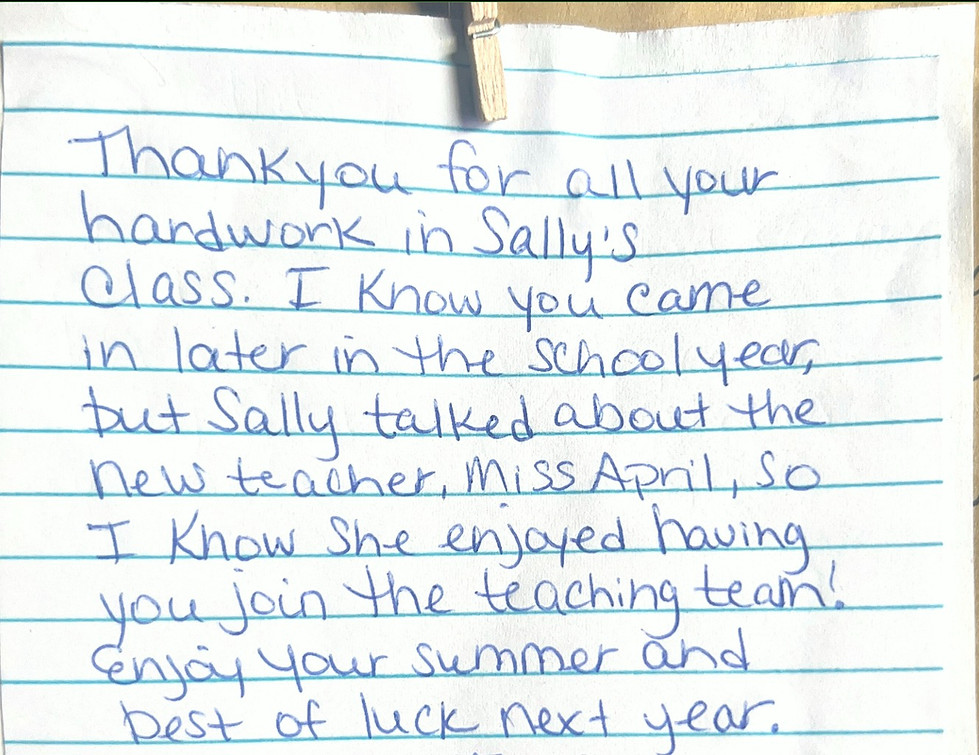 Thankyou for all your
hardwork in Sally's
Class. I Know you came
in later in the school year,
but Sally talked about the
new teacher, Miss April, so
I Know She enjoyed having
you join the teaching team!
Enjoy your summer and
best of luck next year.